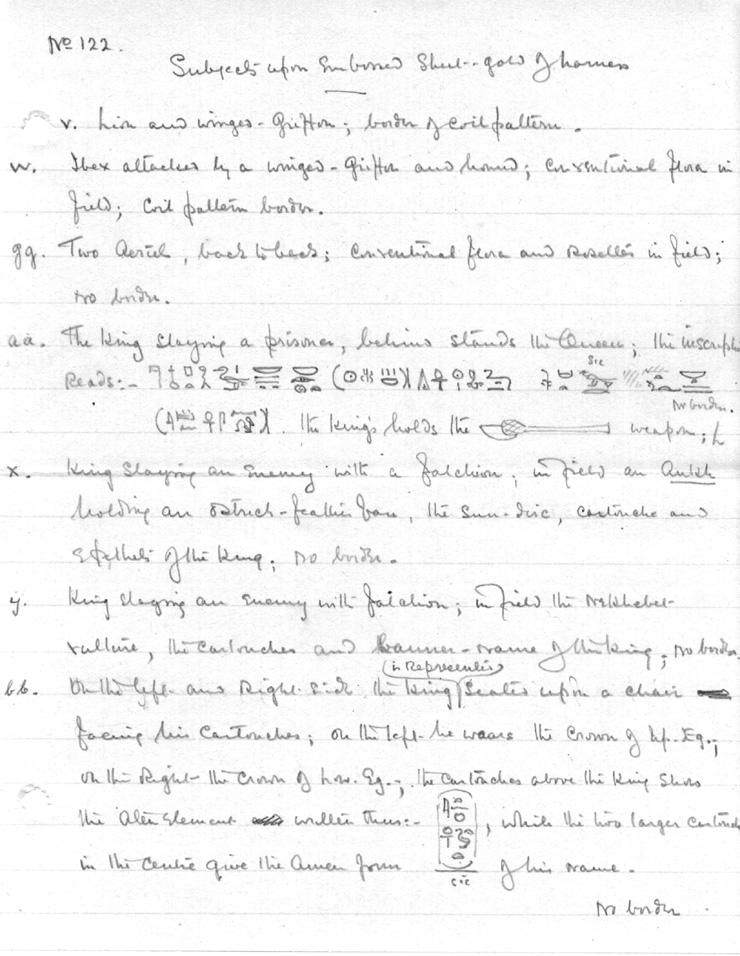 No 122.
Subjects upon Embossed Sheet-gold of harness
v. Lion and winged-Griffon; border of coil pattern.
w. Ibex attacked by a winged-Griffon and hound; conventional flora in
field; coil pattern border.
gg. Two , back to back; conventional flora and rosettes in field;
No border.
aa. The King slaying a prisoner, behind stands the Queen; the inscript
Reads:- sic
No border.
The King's holds the weapon;
x. King slaying an enemy with a falchion; in field an Ankh
holding an ostrich-feather fan, the sun-disc, cartouche and
epithets of the King; No border.
y. King slaying an enemy with falchion; in field the Nekhebet-
vulture, the cartouches and banner-name of the king; No border.
(is represented)
bb. On the left and Right side the King seated upon a chair
facing his cartouches; on the left he wears the crown of Up. Eg.;
on the Right the crown of Low. Eg.; the cartouches above the King show
the Aten element written thus:- , while the two larger cartouch
in the centre give the Amen form sic of his name.
No border